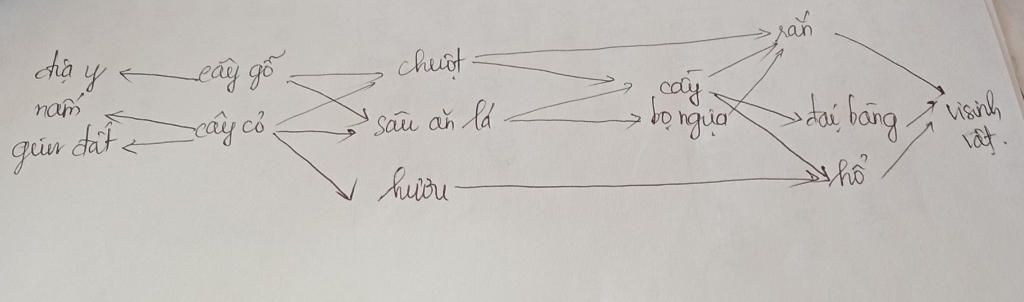 địa y
nấm
giun đất
cây gỗ
cây cỏ
chuột
sâu ăn lá
hươu
cầy
bọ ngựa
rắn
đại bàng
hổ
visinh
vật.